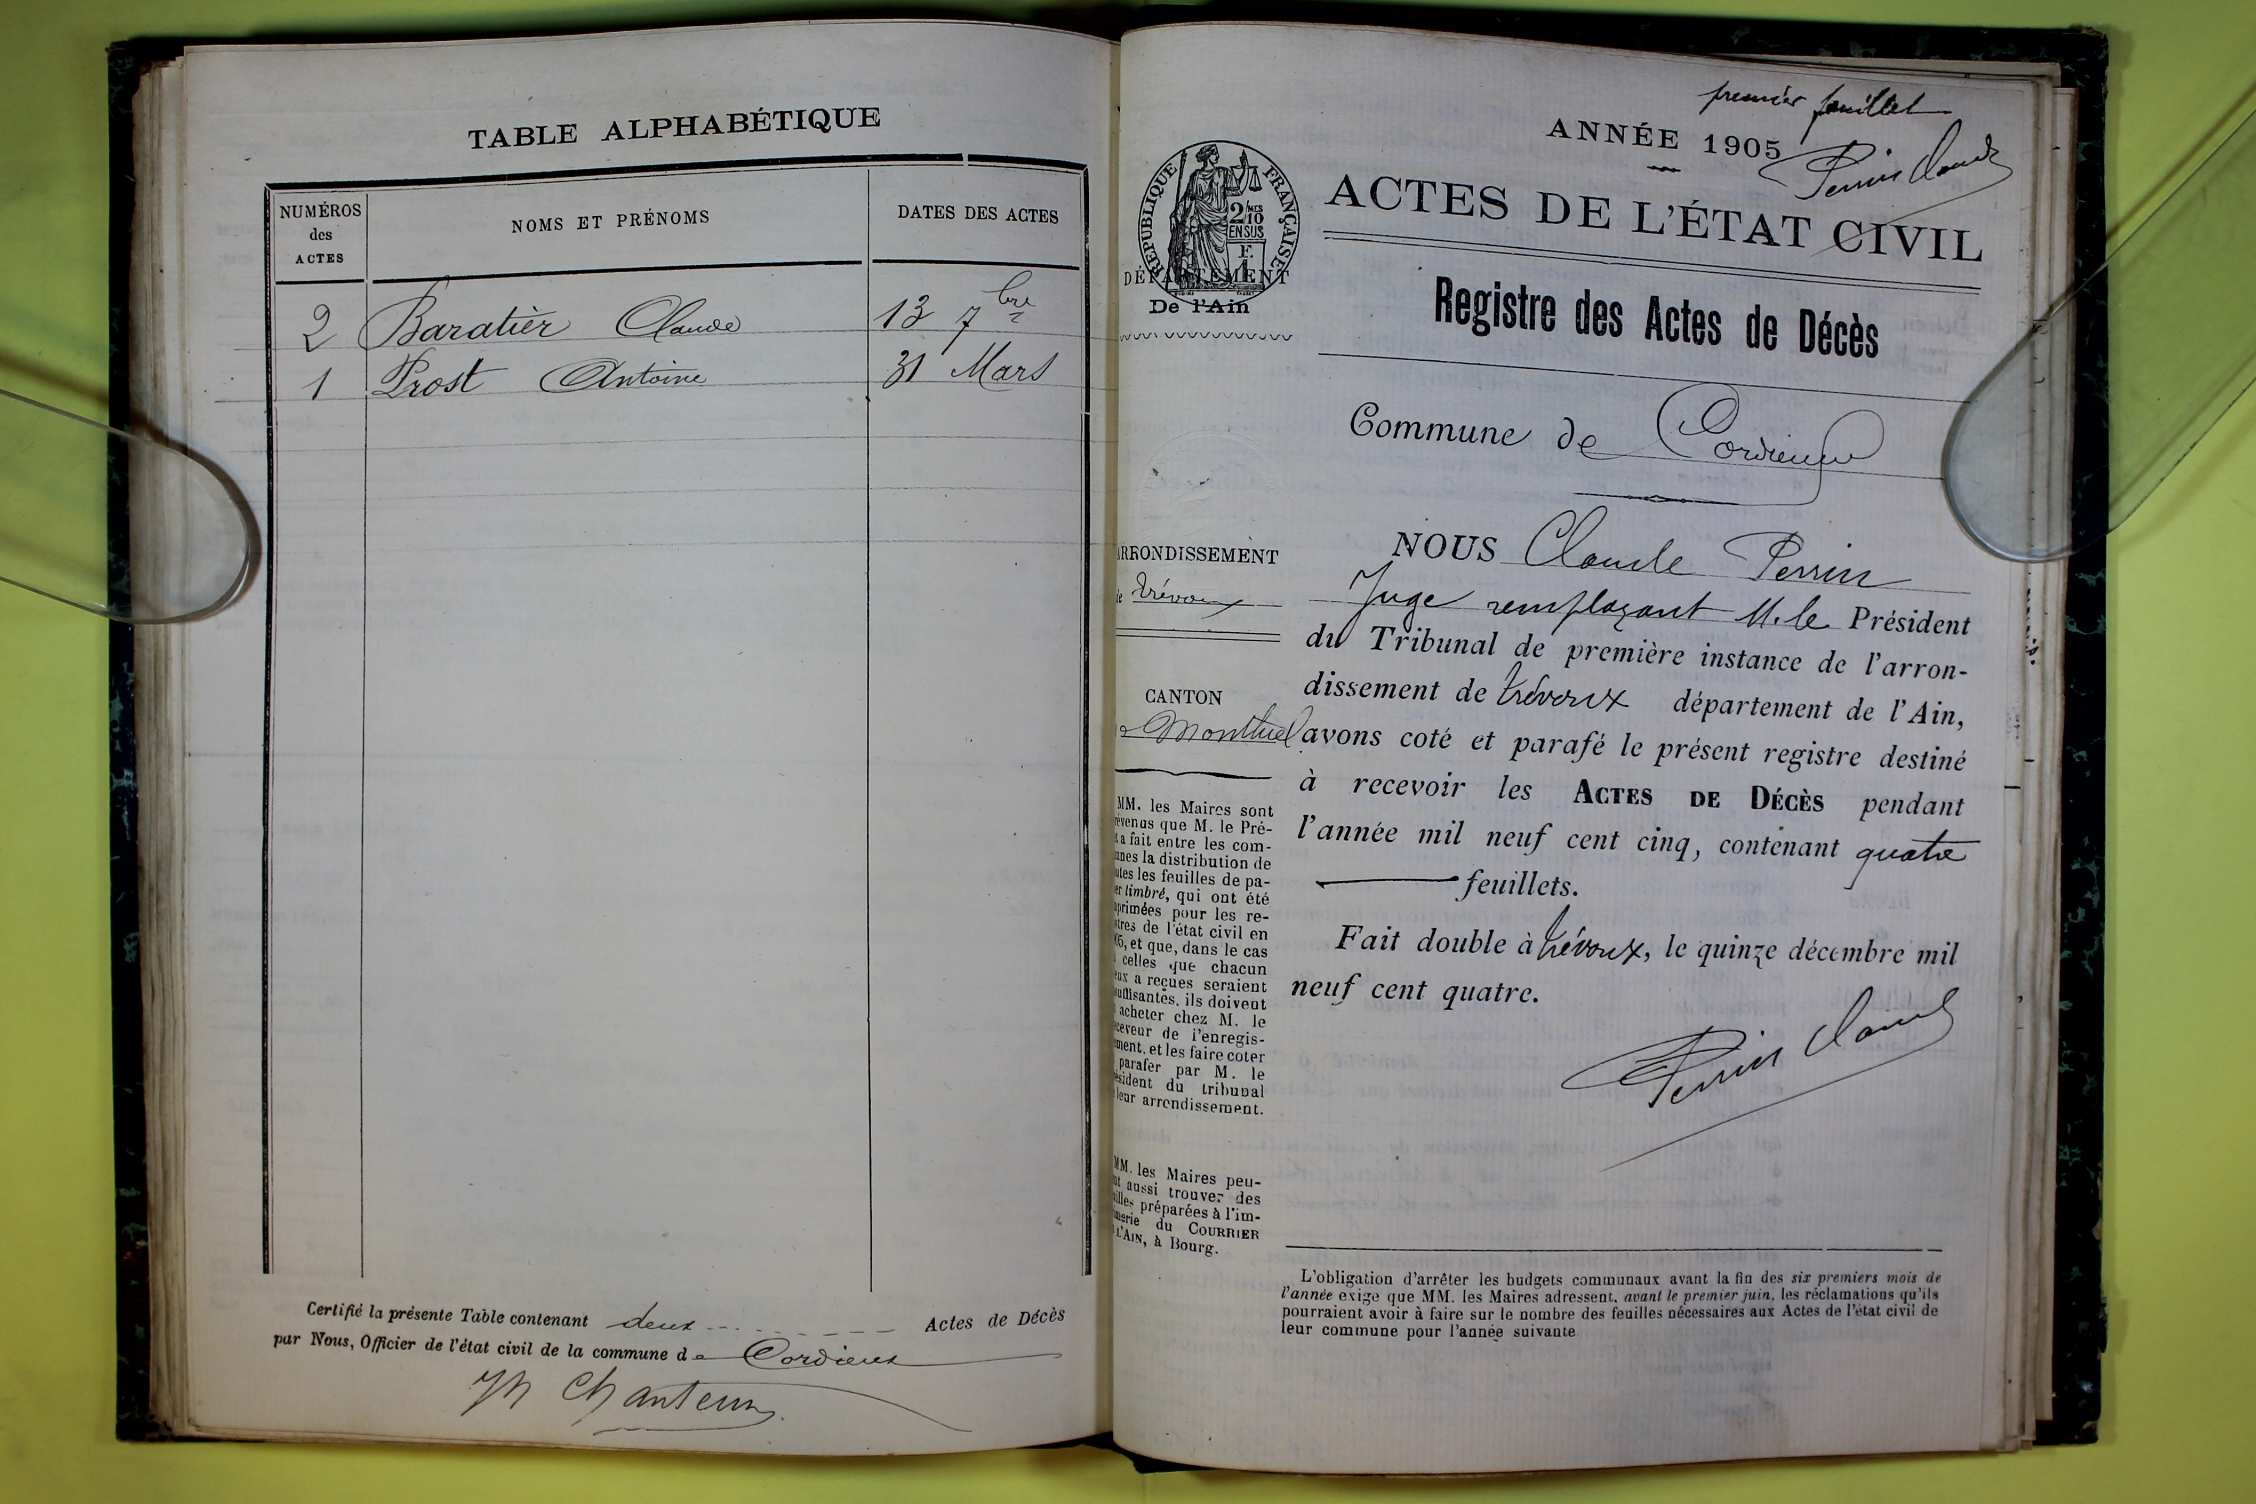 TABLE ALPHABÉTIQUE
NUMÉROS des ACTES
NOMS ET PRÉNOMS
DATES DES ACTES
2 Baratier Claude 13 7bre
1 Prost Antoine 31 Mars
Certifié la présente Table contenant deux Actes de Décès
par Nous, Officier de l'état civil de la commune de Cordieux
premier feuillet
ANNÉE 1905
Perrin Claude
ACTES DE L'ÉTAT CIVIL
RÉPUBLIQUE FRANÇAISE
2/10 MES
EN SUS
F.
1
DÉPARTEMENT
De l'Ain
Registre des Actes de Décès
Commune de Cordieux
ARRONDISSEMENT
de Trévoux
CANTON
Montluel
MM. les Maires sont
prévenus que M. le Pré-
a fait entre les com-
munes la distribution de
toutes les feuilles de pa-
pier timbré, qui ont été
imprimées pour les re-
gistres de l'état civil en
et que, dans le cas
celles que chacun
d'eux a reçues seraient
insuffisantes, ils doivent
acheter chez M. le
receveur de l'enregis-
trement, et les faire coter
parafer par M. le
président du tribunal
leur arrondissement.
MM. les Maires peu-
vent aussi trouver des
feuilles préparées à l'im-
primerie du COURRIER
L'AIN, à Bourg.
NOUS Claude Perrin
Juge remplaçant M. le Président
du Tribunal de première instance de l'arron-
dissement de Trévoux département de l'Ain,
avons coté et parafé le présent registre destiné
à recevoir les ACTES DE DÉCÈS pendant
l'année mil neuf cent cinq, contenant quatre
feuillets.
Fait double à Trévoux, le quinze décembre mil
neuf cent quatre.
Perrin Claude
L'obligation d'arrêter les budgets communaux avant la fin des six premiers mois de
l'année exige que MM. les Maires adressent, avant le premier juin, les réclamations qu'ils
pourraient avoir à faire sur le nombre des feuilles nécessaires aux Actes de l'état civil de
leur commune pour l'année suivante